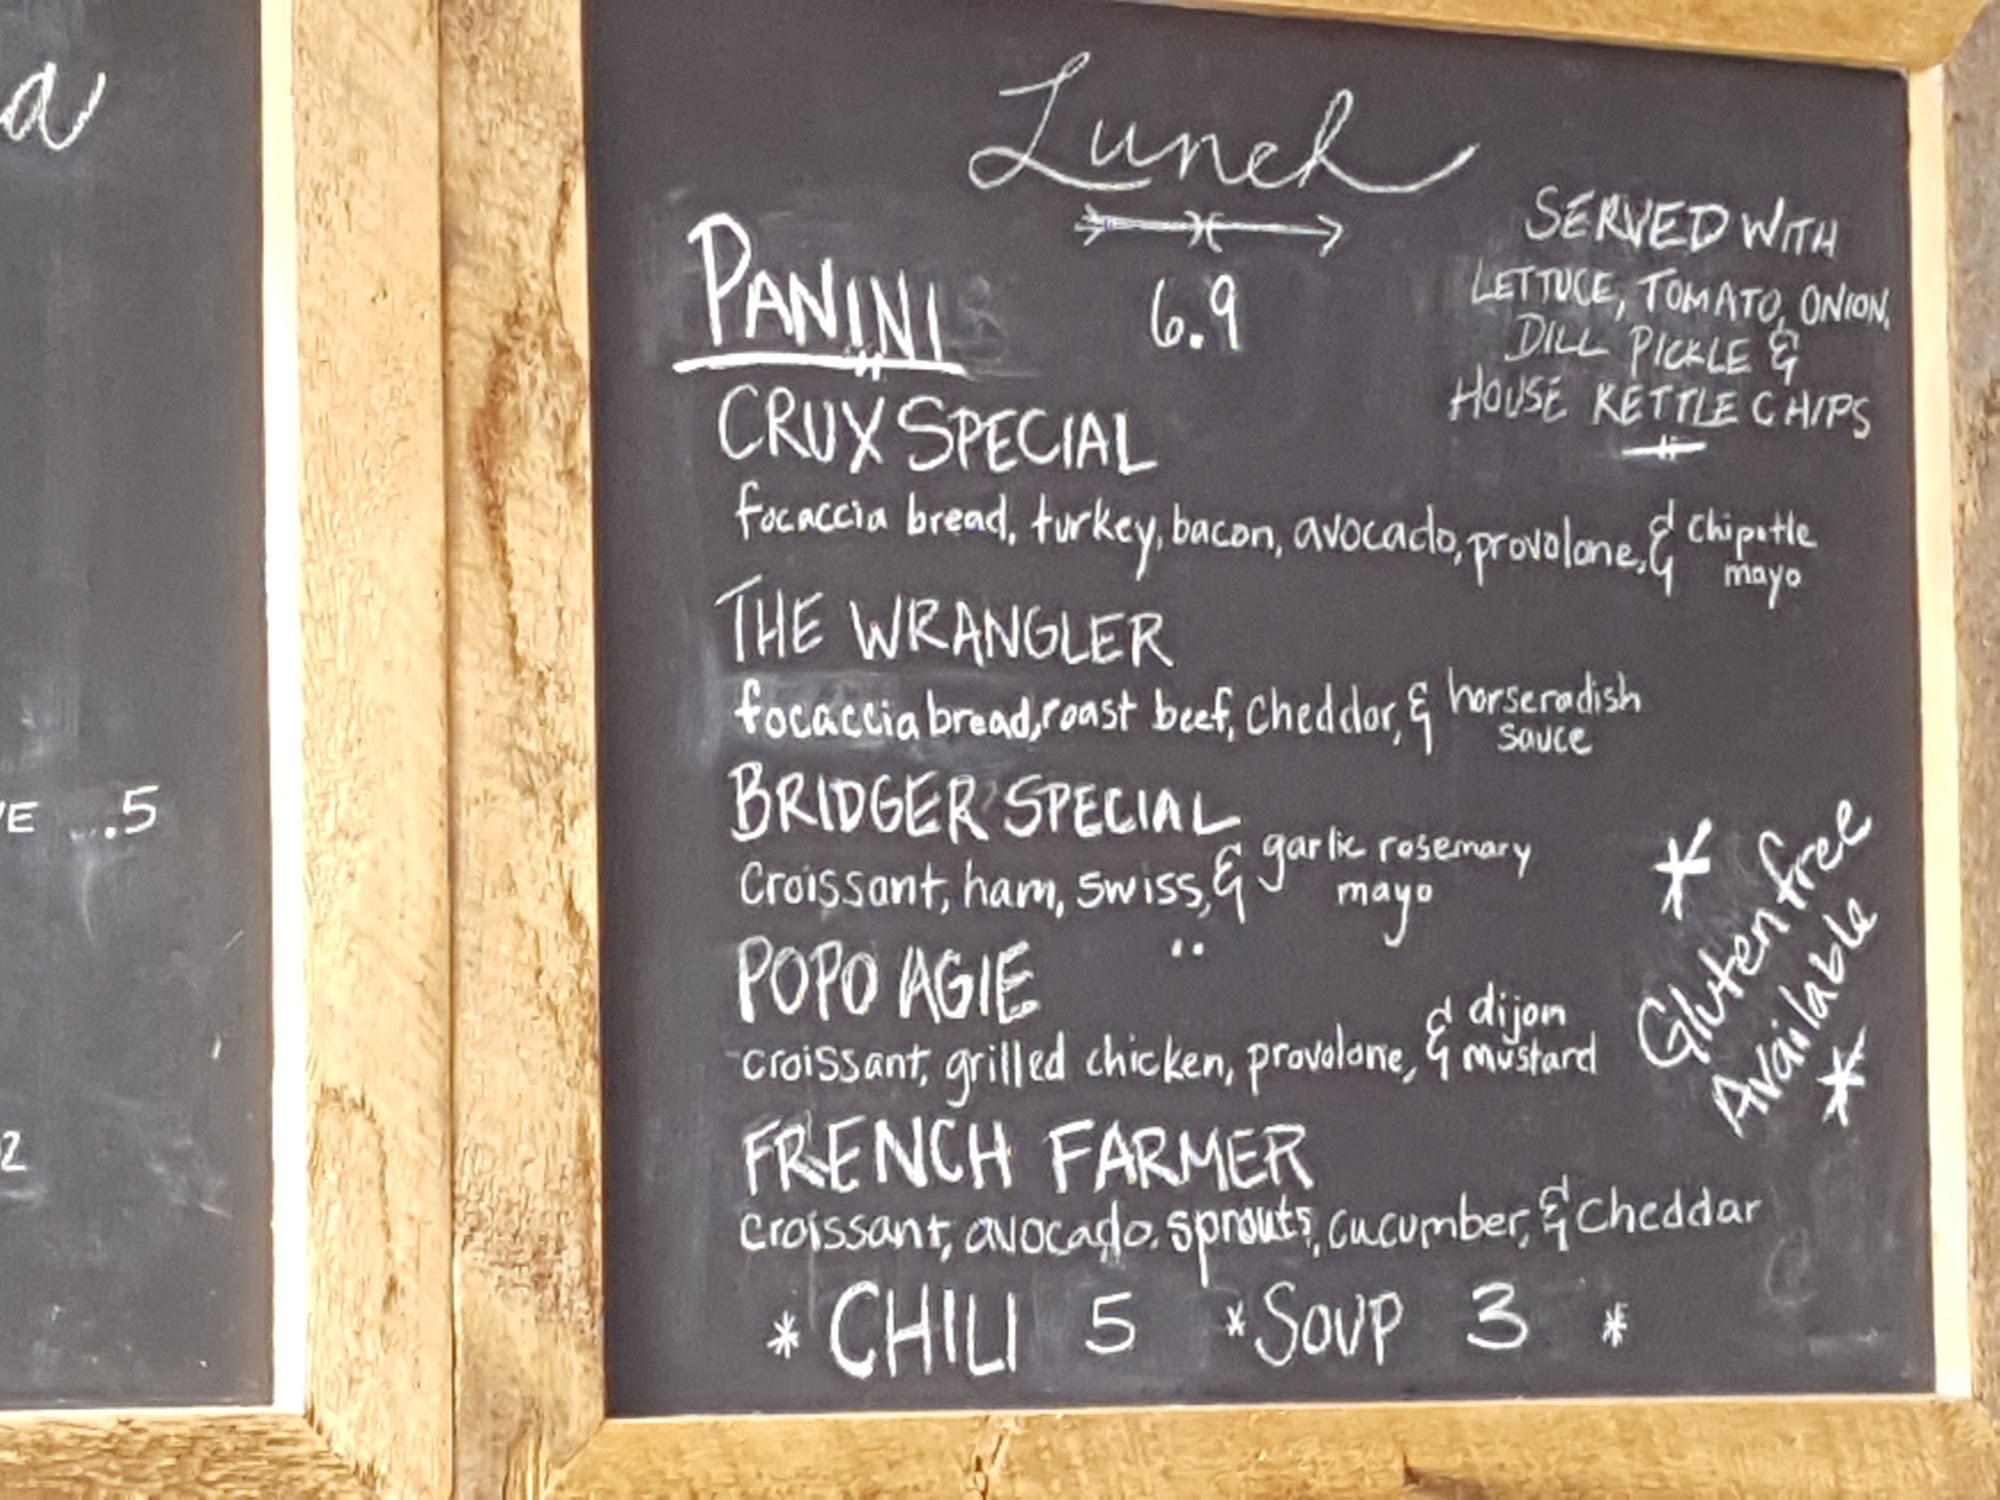 a
VE ...5
2
Lunch
PANINI 6.9
SERVED WITH
LETTUCE, TOMATO, ONION,
DILL PICKLE &
HOUSE KETTLE CHIPS
CRUX SPECIAL
focaccia bread, turkey, bacon, avocado, provolone, & chipotle
mayo
THE WRANGLER
focaccia bread, roast beef, cheddar, & horseradish
sauce
BRIDGER SPECIAL
croissant, ham, swiss, & garlic rosemary
mayo
POPO AGIE
croissant, grilled chicken, provolone, & dijon
mustard
FRENCH FARMER
croissant, avocado, sprouts, cucumber, & cheddar
* CHILI 5 * SOUP 3 *
* Gluten free
Available *